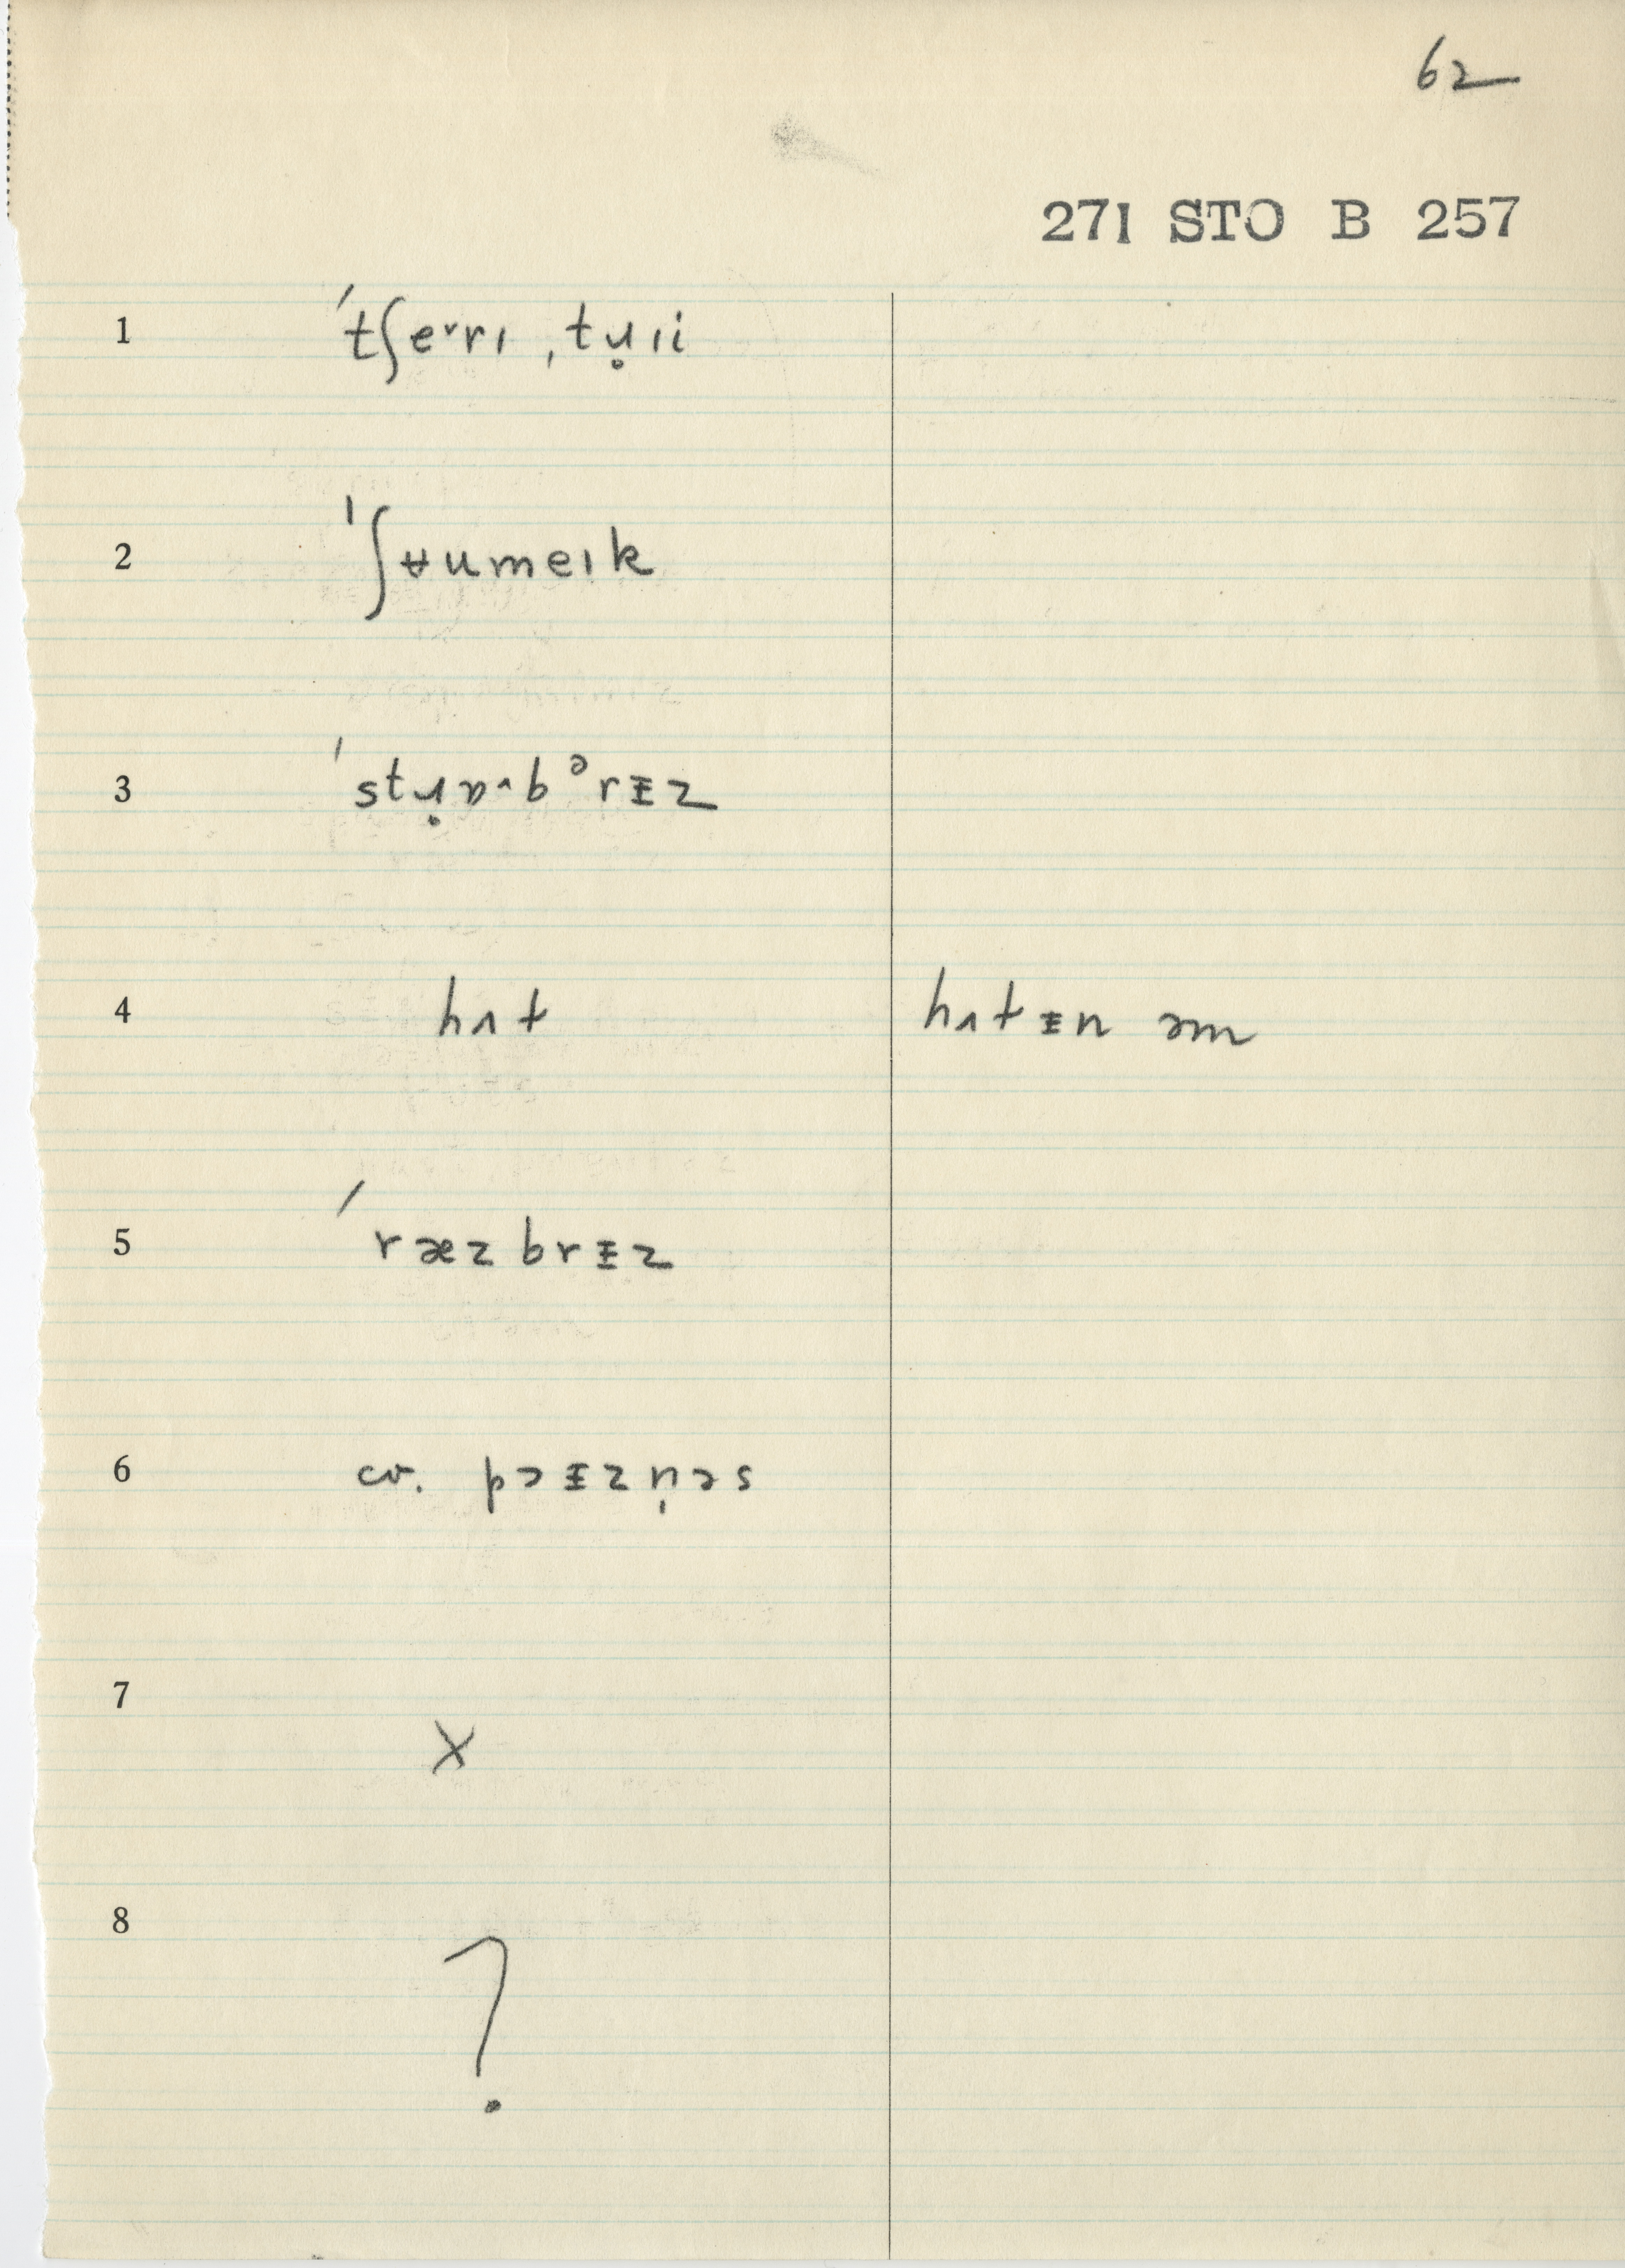 62
271 STO B 257
1 ˈtʃe˅rɪ ˌtɹ̥ɪi
2 ˈʃʉumeɪk
3 ˈstɹ̥ɒ^bᵊrᵻz
4 hʌt hʌtᵻn əm
5 ˈræzbrᵻz
6 cv. pɔᵻzn̩əs
7 X
8 ?